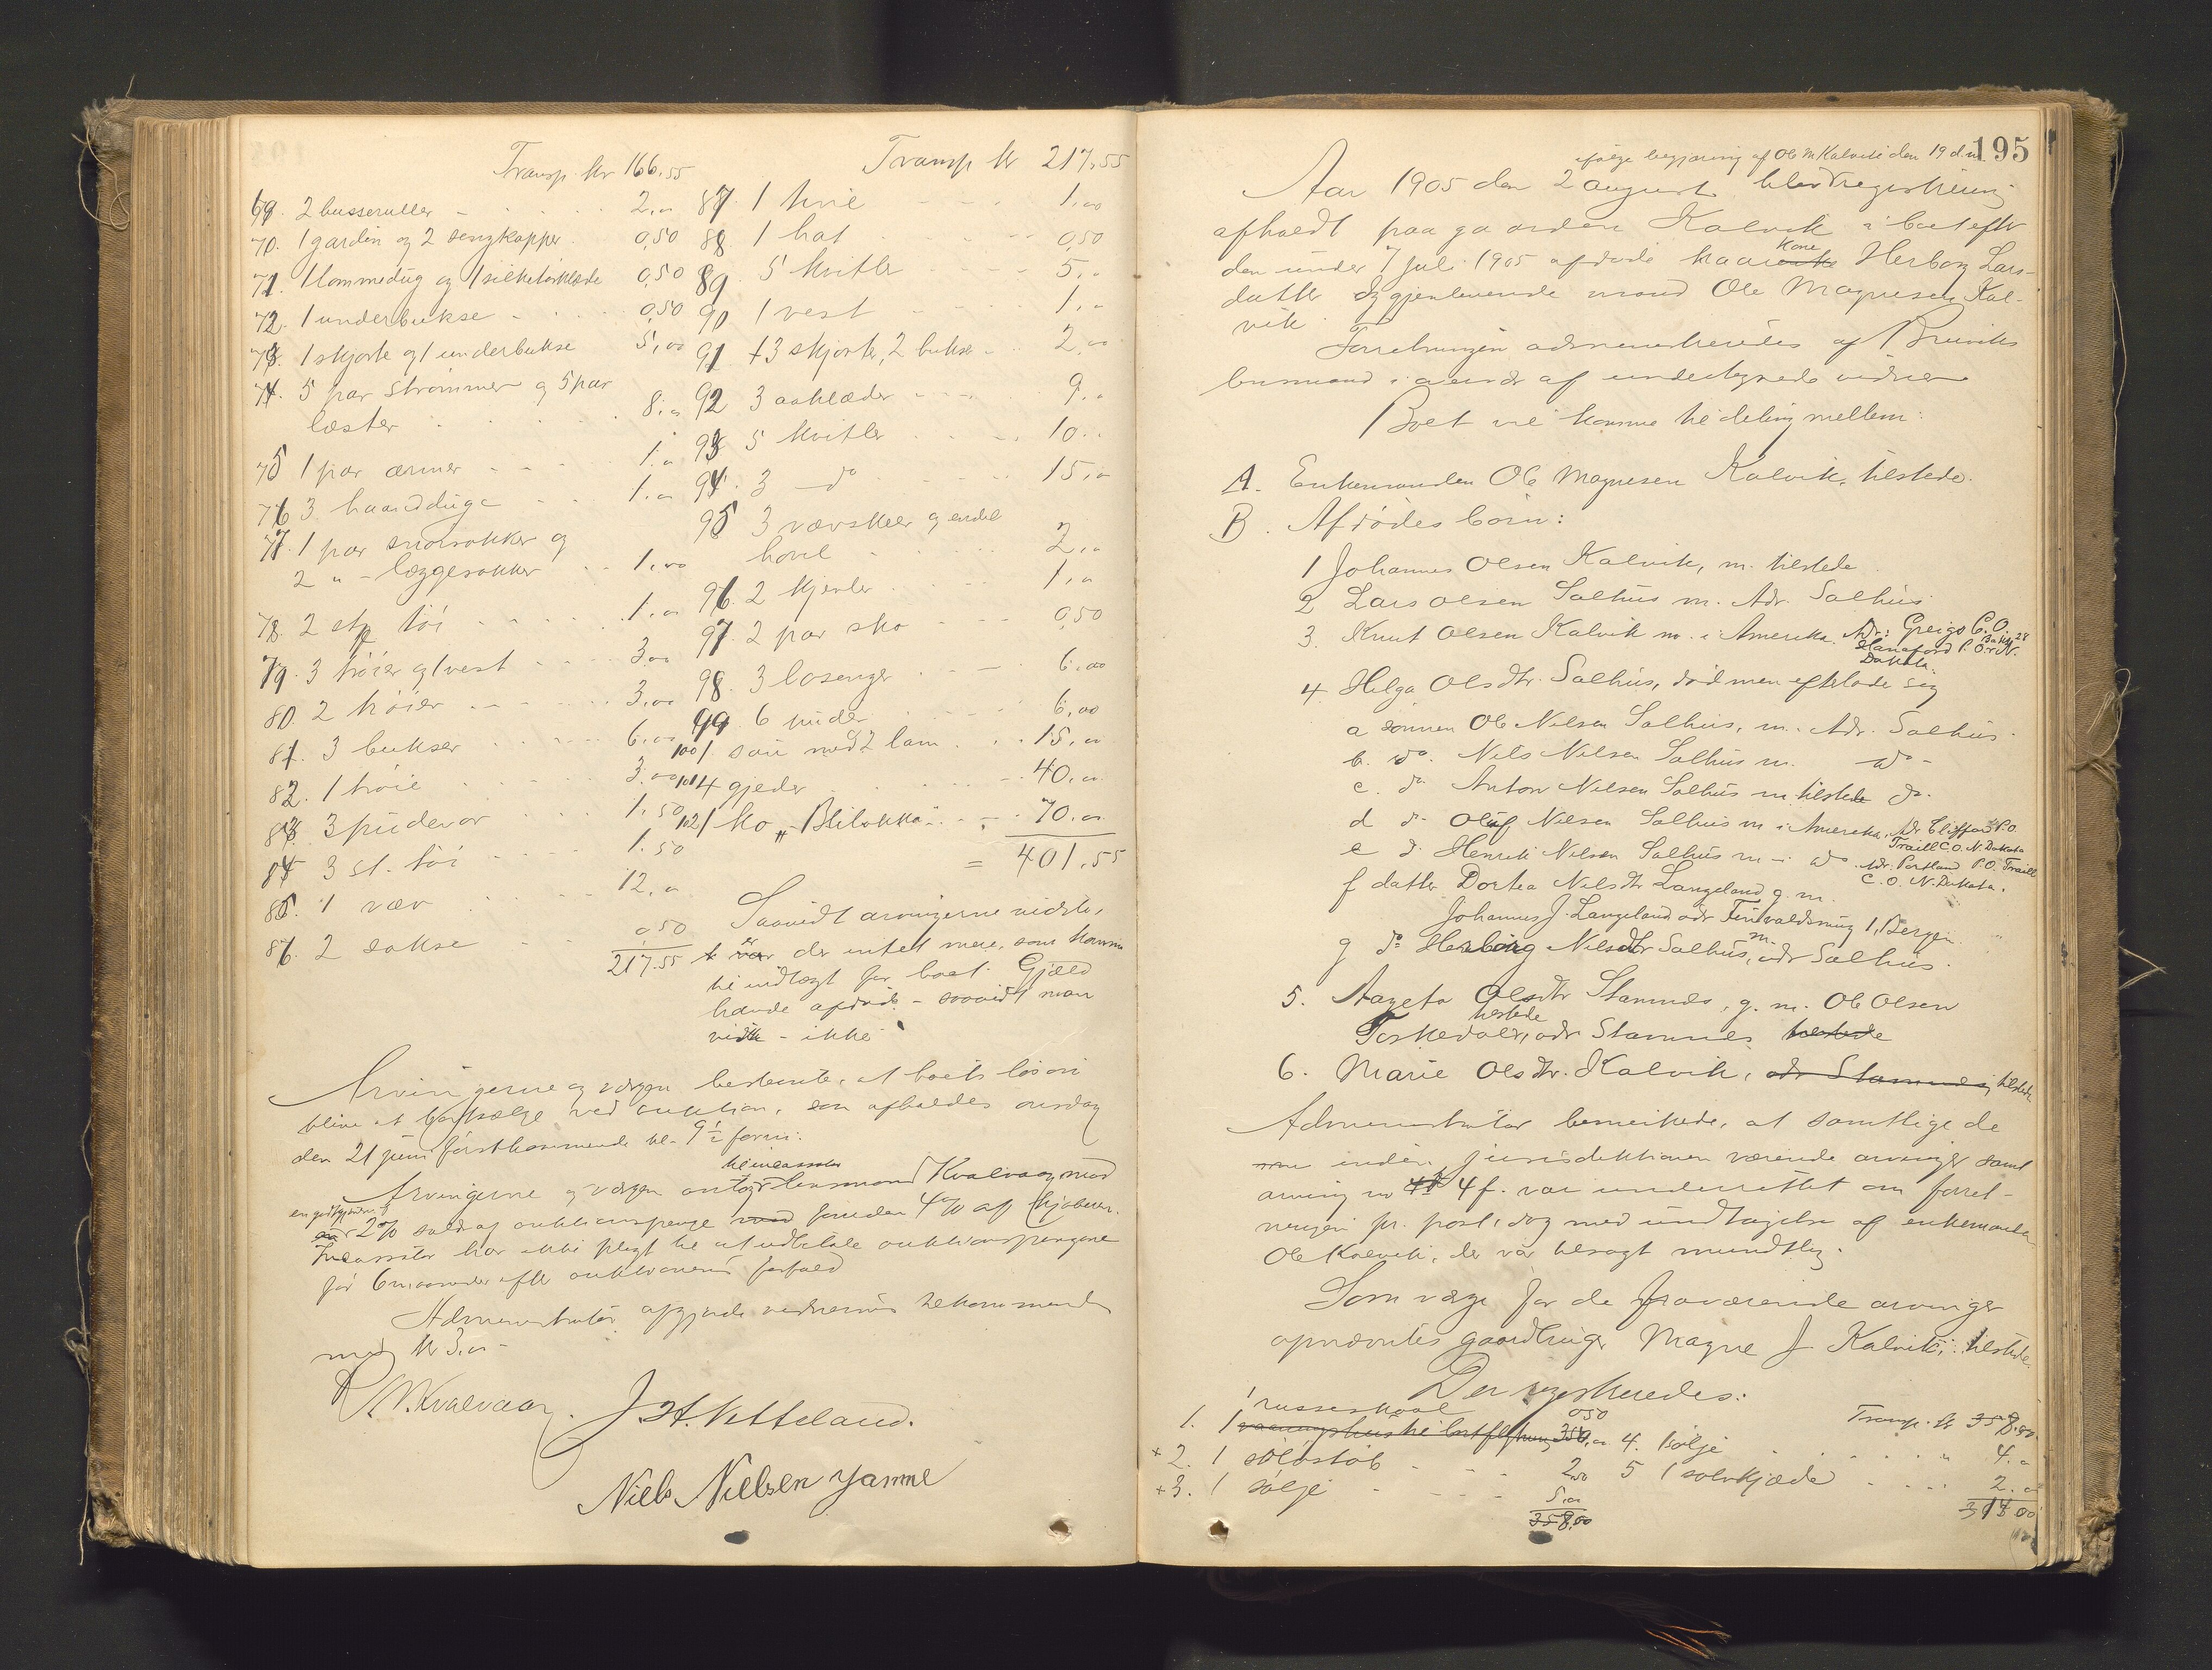 Transp. kr 166.55
69. 2 busseruller - 2.00
70. 1 gardin og 2 sengkapper 0,50
71. 1 lommedug og 1 silketørklæde 0,50
72. 1 underbukse 0,50
73. 1 skjorte og 1 underbukse 5,00
74. 5 par strømmer og 5 par
læster 8.00
75 1 par ærmer 1.00
76 3 haandduge 1.00
77. 1 par snorsokker og
2 " - læggesokker 1,00
78. 2 stp tøi 1.00
79. 3 trøier og 1 vest 3.00
80. 2 trøier 3,00
81. 3 bukser 6.00
82. 1 trøie 3.00
83 3 pudevar 1.50
84 3 st. tøi 1.50
85. 1 væv 12.00
86. 2 sakse 0,50
217.55
Transp kr 217.55
87. 1 1.00
88. 1 hat 0,50
89 5 kvitler 5.00
90 1 vest 1.00
91 3 skjorter, 2 bukser 2.00
92 3 aaklæder 9.00
93 5 kvitler 10.00
94. 3 do 15.00
95 3 vævskeer og endel
hovel 2.00
96. 2 kjenler 1.00
97. 2 par sko 0,50
98. 3 bosenger 6.00
99. 6 puder 6,00
100 1 sau med 2 lam 15.00
101 4 gjeder 40.00
102 1 ko "Blilokka" 70.00
= 401.55
Saavidt arvingerne vidste,
er der intet mere, som komme
til indtægt for boet. Gjæld
havde afdøde - saavidt man
vidste - ikke
Arvingerne og værgen bestemte, at boets løsøre
blive at bortsælge ved auktion, som afholdes onsdag
den 21 juni førstkommende kl. 9 1/2 form:
Arvingerne og værgen antog til incassator lensmand Kvalvaag mod
en godtgjørelse af 2% salær af auktionspenge foruden 4% af kjøberen.
Incassator har ikke pligt til at udbetale auktionspengene
før 6 maaneder efter auktionens forfald
Administrator afgjorde vidnernes tilkommende
med kr 3.00 -
P. M. Kvalvaag. J. H. Vetteland.
Niels Nielsen Jamne
195
ifølge begjæring af Ole M Kalvik den 19 d.m.
Aar 1905 den 2 august blev registrering
afholdt paa gaarden Kalvik i boet efter
den under 7 juli 1905 afdøde kaarkone Herborg Lars-
datter og gjenlevende mand Ole Magnesen Kal-
vik.
Forretningen administreredes af Bruviks
lensmand i nærvær af undertegnede vidner
Boet vil komme til deling mellem:
A. Enkemanden Ole Magnesen Kalvik, tilstede.
B. Afdødes børn:
1 Johannes Olsen Kalvik, m. tilstede.
2 Lars Olsen Salhus m. Adr. Salhus
3. Knut Olsen Kalvik m. i Amerika. Adr: Greigs C.O.
Hanaford P.O. Box 28 N.
Dakota.
4. Helga Olsdtr. Salhus, død men efterlode sig
a sønnen Ole Nilsen Salhus, m. Adr. Salhus.
b. do. Nils Nilsen Salhus m. do -
c. do Anton Nilsen Salhus m. tilstede do.
d do Oluf Nilsen Salhus m i Amerika, Adr Clifford P.O.
Traill C.O. N. Dakota
e do Henrik Nilsen Salhus m - i do. Adr. Portland P.O. Traill
C.O. N. Dakota.
f datter Dortea Nilsdtr Langeland g. m.
Johannes J. Langeland adr Finvaldsmug 1, Bergen
g do Herborg Nilsdtr Salhus, m. adr Salhus.
5. Aageta Olsdtr Stamnes, g. m. Ole Olsen
Toskedalen, adr Stamnes tilstede
6. Marie Olsdtr. Kalvik, adr Stamnes tilstede
Administrator bemerkede, at samtlige de
inden jurisdiktionen værende arvinger samt
arving no 4 f. var underrettet om forret-
ningen pr. post, dog med undtagelse af enkemanden
Ole Kalvik, der var tilsagt mundtlig.
Som værge for de fraværende arvinger
opnævntes gaardbruger Magne J. Kalvik, tilstede
Der registreredes:
1. 1 russeskaal 0,50
1 vaaningshus til bortflytning 350,00
+ 2. 1 sølvstøb 2.00
+ 3. 1 sølje 5.00
358,00
Transp. kr 358.00
4. 1 sølje 4.00
5 1 sølvkjæde 2.00